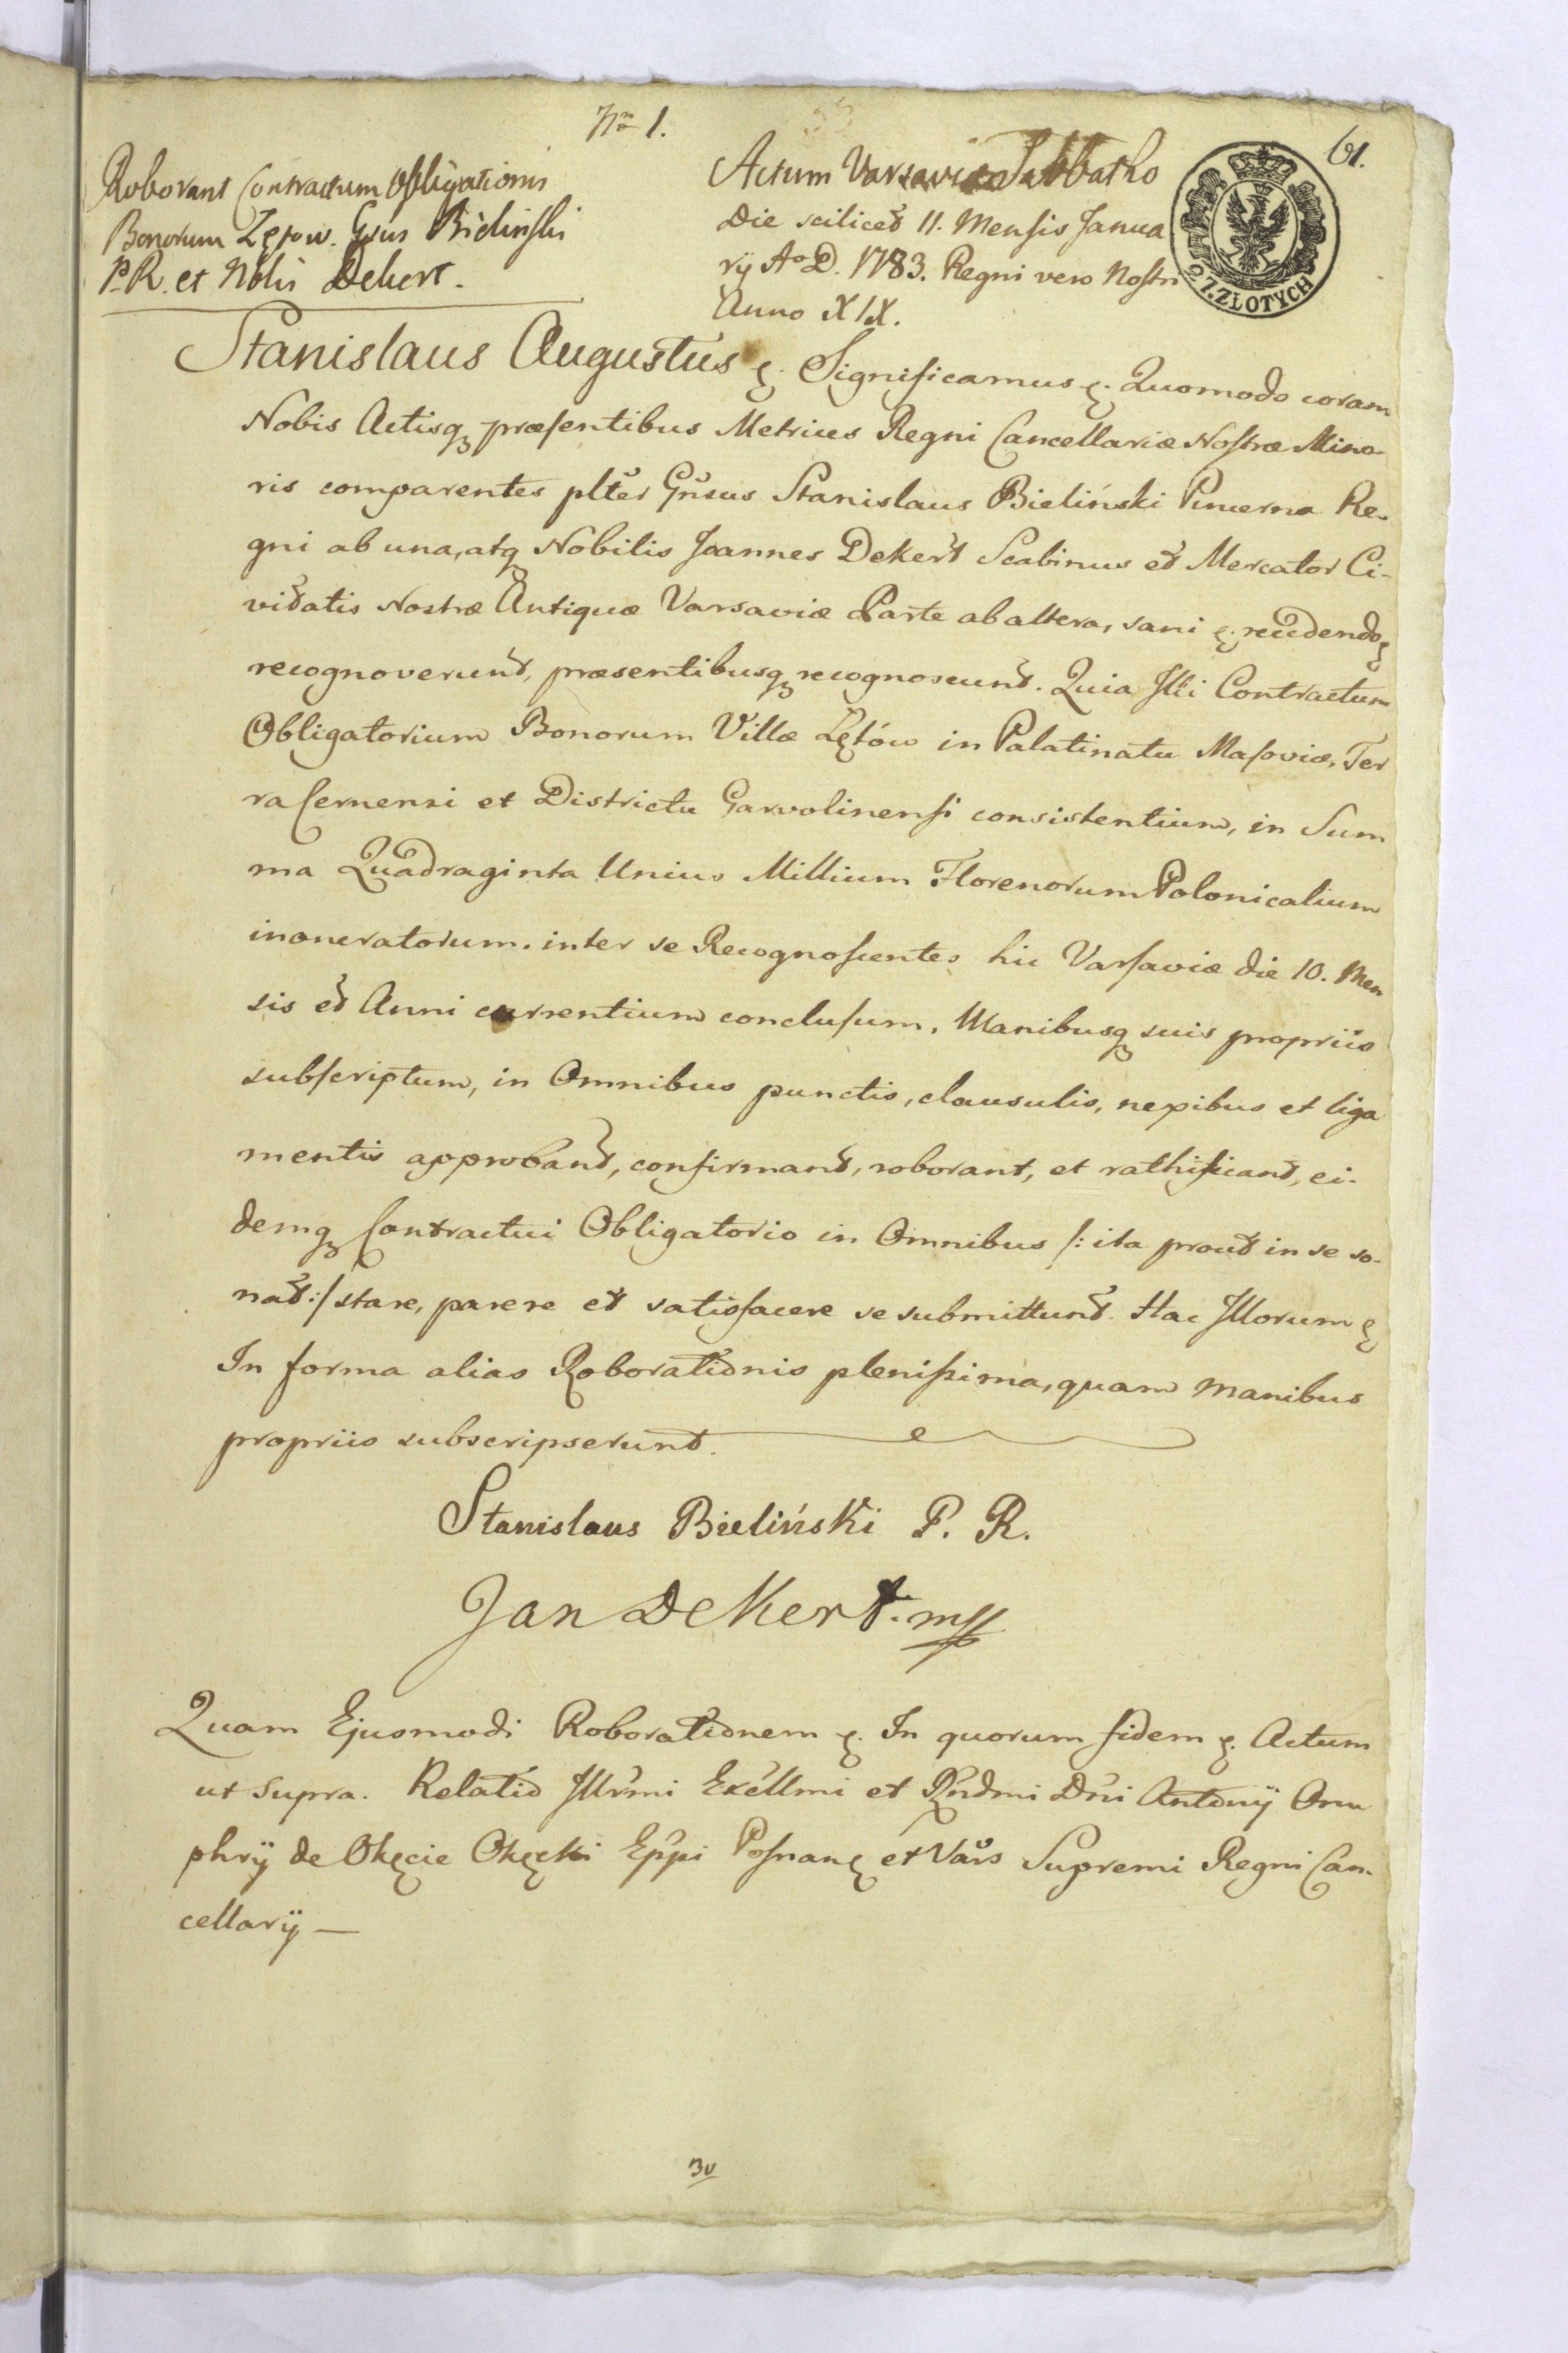 Nro 1.
61.
Roborant Contractum Obligationis
Bonorum Łętow. Gsus Bieliński
P. R. et Nblis Dekert.
Actum Varsaviæ Sabbatho
Die scilicet 11. Mensis Janua
rÿ Ao D. 1783. Regni vero Nostri
Anno XIX.
O 7. ZŁOTYCH
Stanislaus Augustus &. Significamus &. Quomodo coram
Nobis Actisq præsentibus Metrices Regni Cancellariæ Nostræ Mino-
ris comparentes plter Gnsus Stanislaus Bieliński Pincerna Re-
gni ab una, atq Nobilis Joannes Dekert Scabinus et Mercator Ci-
vitatis Nostræ Antiquæ Varsaviæ Parte ab altera, sani &. recedendo &
recognoverunt, præsentibusq recognoscunt. Quia Illi Contractum
Obligatorium Bonorum Villæ Łętów in Palatinatu Masoviæ, Ter
ra Cernensi et Districtu Garvolinensi consistentium, in Sum
ma Quadraginta Unius Millium Florenorum Polonicalium
inoneratorum. inter se Recognoscentes hic Varsaviæ die 10. Men
sis et Anni currentium conclusum, Manibusq suis propriis
subscriptum, in Omnibus punctis, clausulis, nexibus et liga
mentis approbant, confirmant, roborant, et rathificant, ei-
demq Contractui Obligatorio in Omnibus /: ita prout in se so-
nat :/ stare, parere et satisfacere se submittunt. Hac Illorum &
In forma alias Roborationis plenissima, quam Manibus
propriis subscripserunt.
Stanislaus Bieliński P. R.
Jan Dekert. mp
Quam Ejusmodi Roborationem &. In quorum fidem &. Actum
ut supra. Relatio Illrmi Excellmi et Rndmi Dni Antonÿ Onu
phrÿ de Okęcie Okęcki Eppi Posnan & et Vars Supremi Regni Can-
cellarÿ —
30